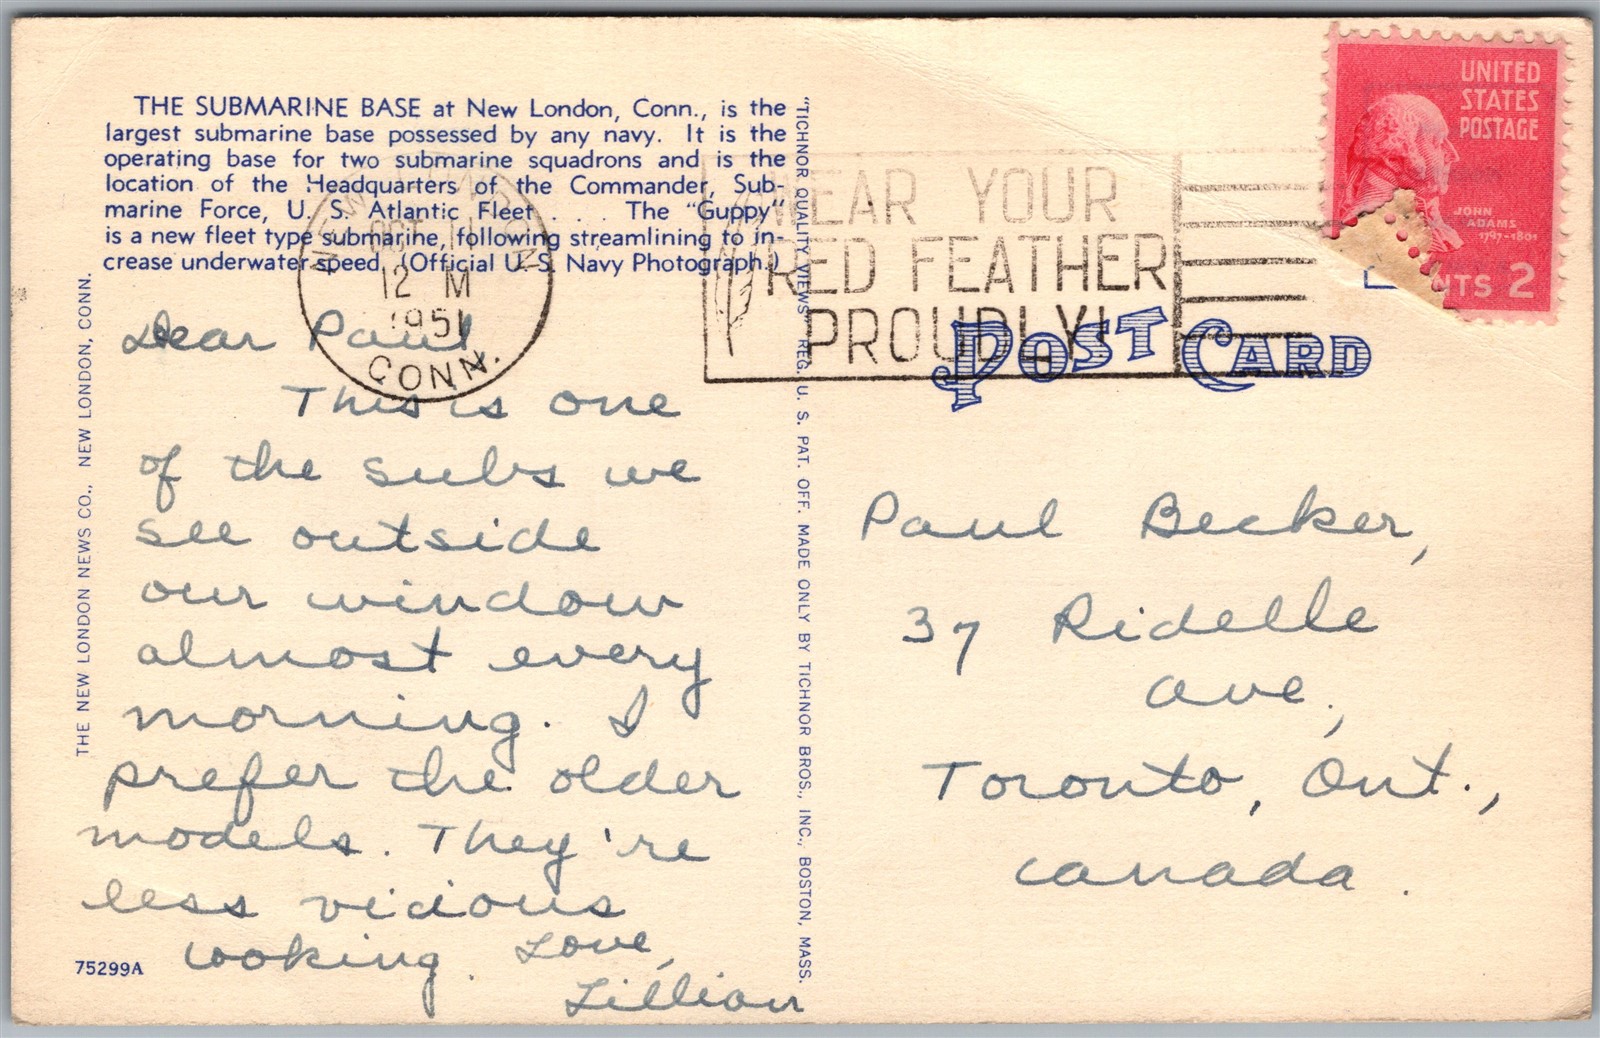 THE SUBMARINE BASE at New London, Conn., is the
largest submarine base possessed by any navy. It is the
operating base for two submarine squadrons and is the
location of the Headquarters of the Commander, Sub-
marine Force, U. S. Atlantic Fleet . . . . The "Guppy"
is a new fleet type submarine, following streamlining to in-
crease underwater speed. (Official U. S. Navy Photograph.)
NEW LONDON
OCT
12 M
1951
CONN.
WEAR YOUR
RED FEATHER
PROUDLY!
UNITED
STATES
POSTAGE
JOHN
ADAMS
1797-1801
NTS 2
POST CARD
THE NEW LONDON NEWS CO., NEW LONDON, CONN.
"TICHNOR QUALITY VIEWS" REG. U. S. PAT. OFF. MADE ONLY BY TICHNOR BROS., INC., BOSTON, MASS.
Dear Paul
This is one
of the subs we
see outside
our window
almost every
morning. I
prefer the older
models. They're
less vicious
looking. Love,
Lillian
75299A
Paul Becker,
37 Ridelle
Ave.,
Toronto, Ont.,
Canada.